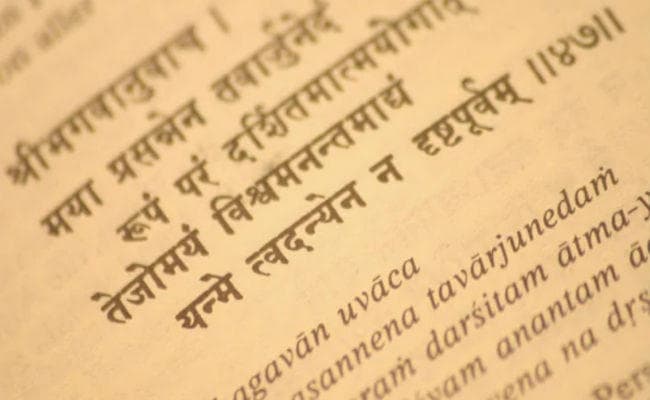 on aller
श्रीभगवानुवाच ।
मया प्रसन्नेन तवार्जुनेदं
रूपं परं दर्शितमात्मयोगात् ।
तेजोमयं विश्वमनन्तमाद्यं
यन्मे त्वदन्येन न दृष्टपूर्वम् ॥४७॥
agavān uvāca
asannena tavārjunedaṁ
raṁ darśitam ātma-y
vam anantam ā
yena na dṛṣ
Pers